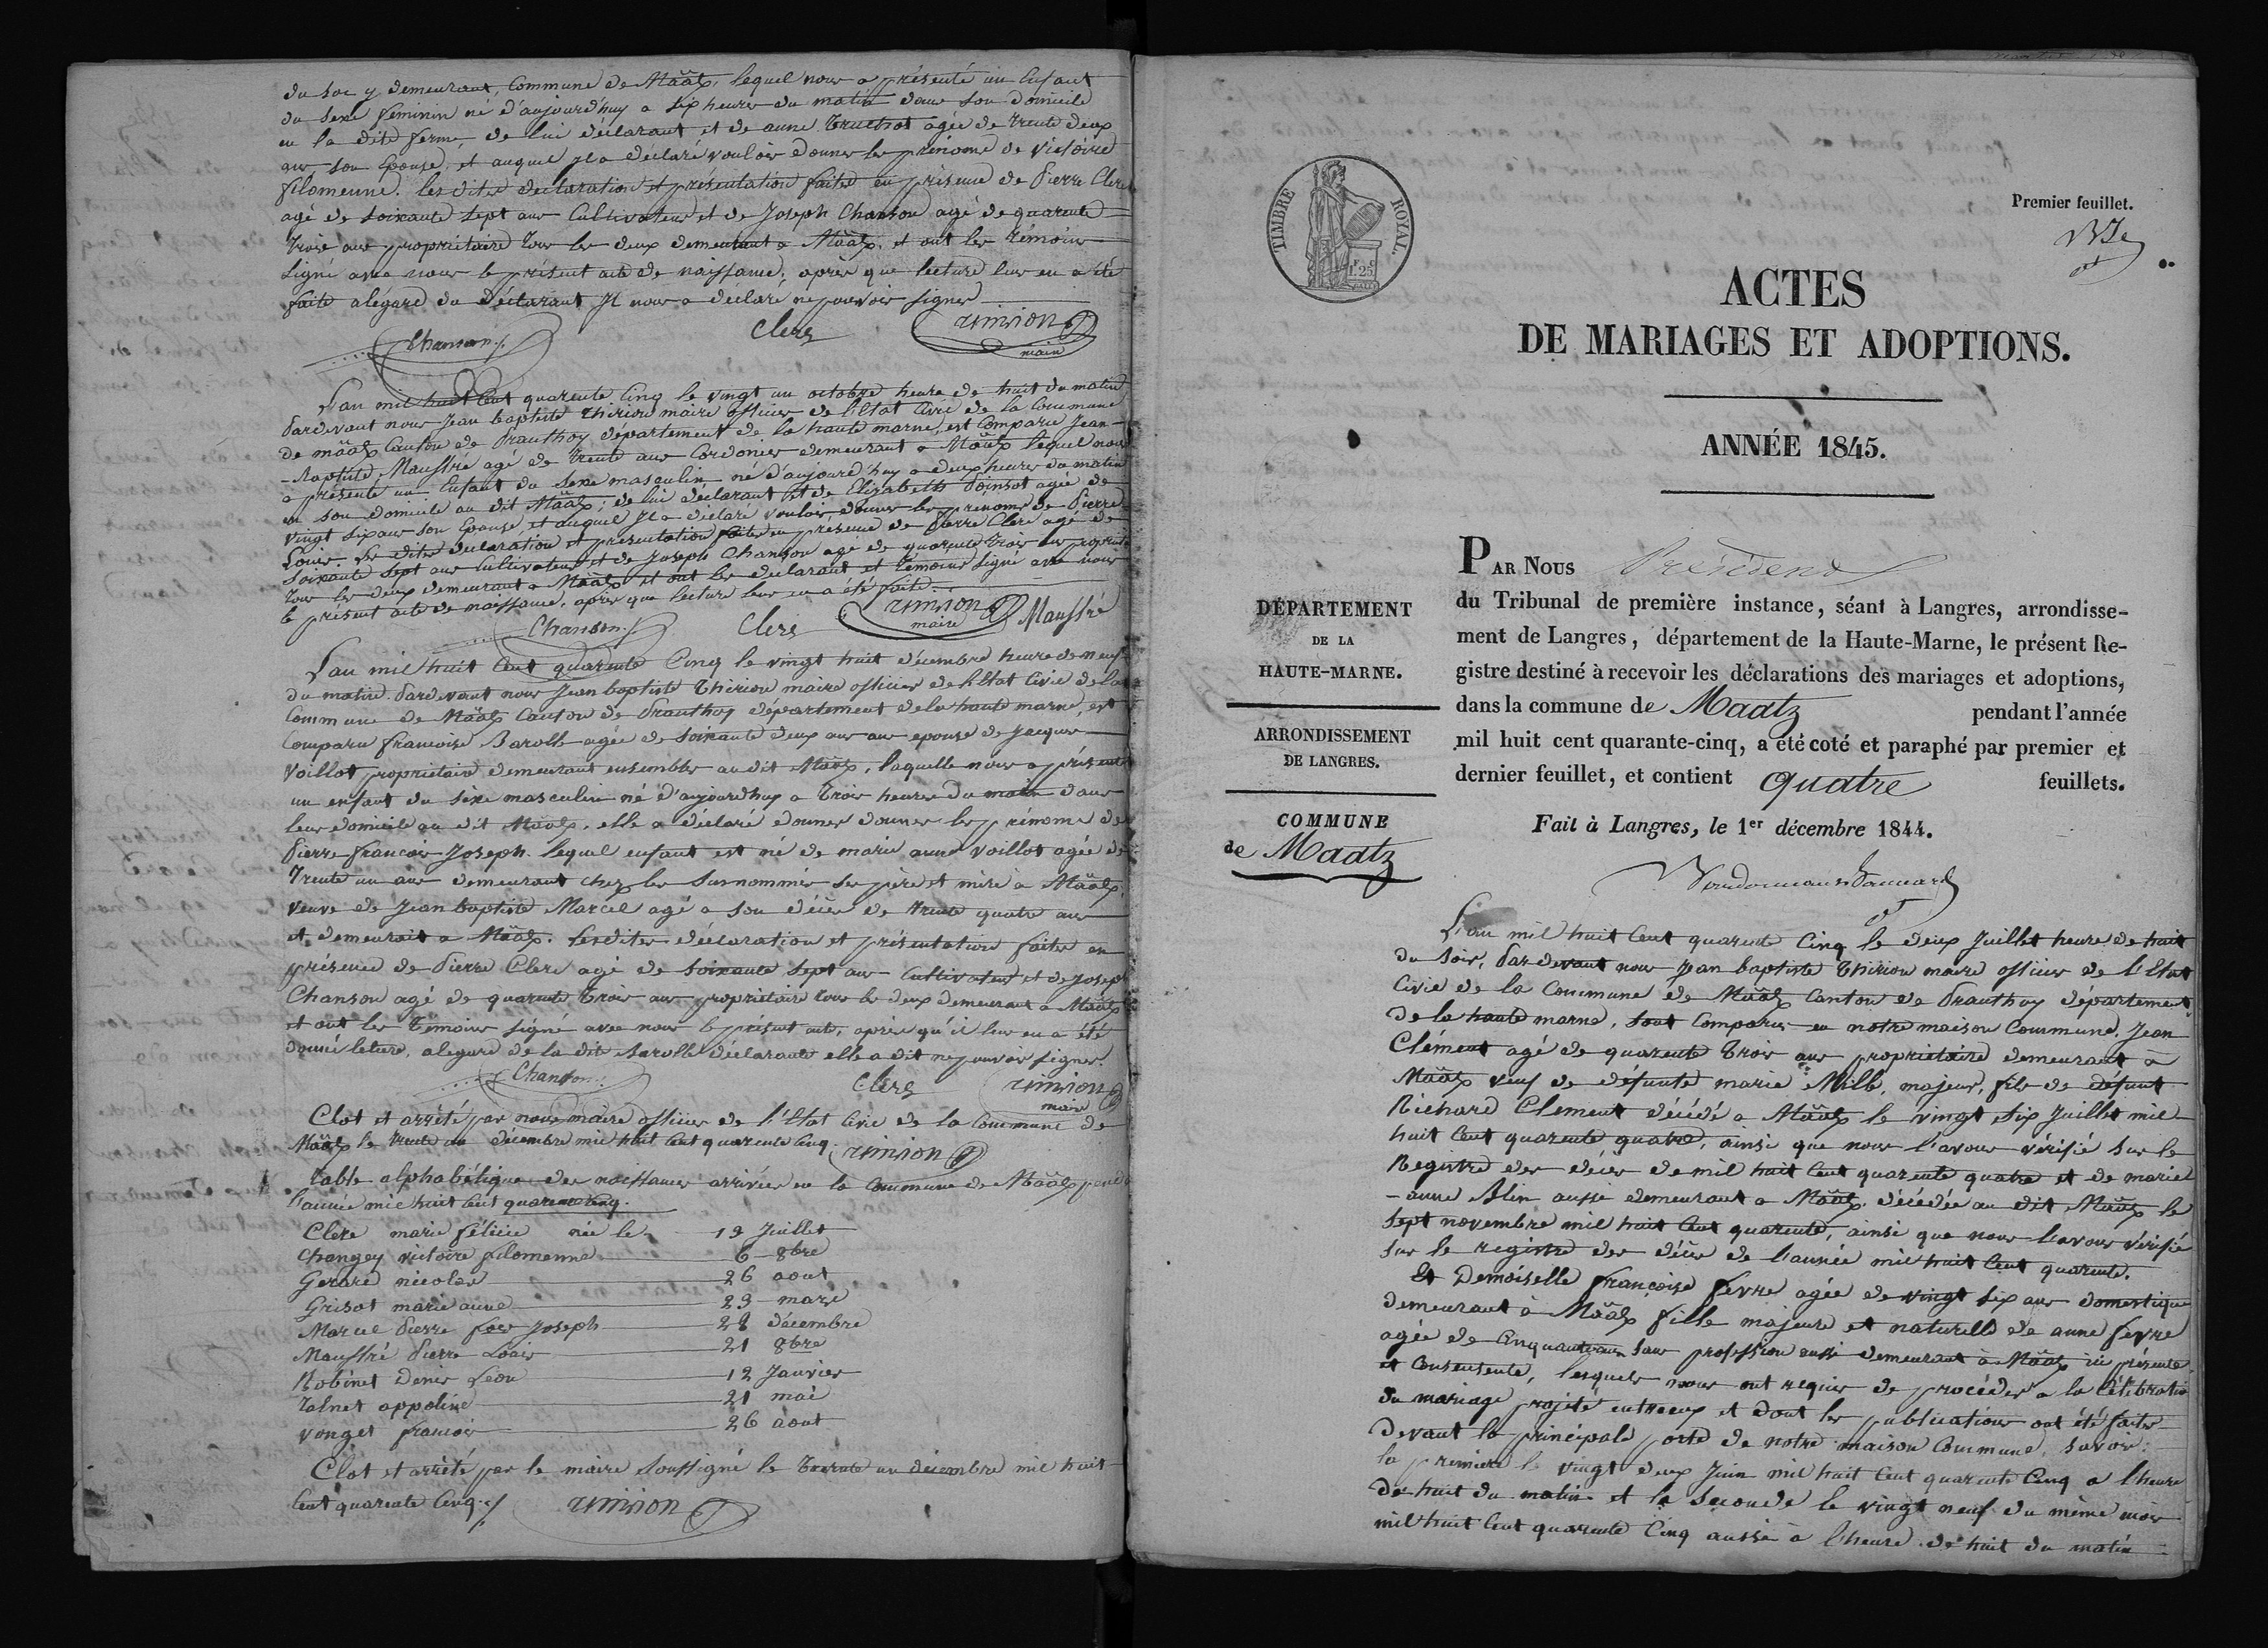 du soc y demeurant, Commune de Määtz, lequel nous a présenté un Enfant
du sexe féminin né d'aujourd'huy a six heures du matin dans son domicile
en la dite ferme, de lui déclarant et de anne Truchot agée de trente deux
ans son Epouse, et auquel Jl a déclaré vouloir donner les prénoms de Victoire
filomenne. Les dites declaration et présentation faites en présence de Pierre Clerc
agé de soixante sept ans Cultivateur et de Joseph Chanson agé de quarente
trois ans propriétaire tous les deux demeurant a Määtz, et ont les témoins
signé avec nous le présent acte de naissance, après que lecture leur en a été
faite alégard du déclarant Jl nous a déclaré ne pouvoir signer
Chanson Clerc Thirion
maire
L'an mil huit Cent quarente Cinq le vingt un octobre heure de huit du matin
Pardevant nous Jean baptiste Thirion maire officier de l'Etat Civil de la Commune
de määtz Canton de Prauthoy département de la haute marne, est Comparu Jean-
-Baptiste Maussré agé de trente ans Cordonier demeurant a Määtz lequel nous
a présenté un Enfant du sexe masculin né d'aujourd'huy a deux heures du matin
en son domicile au dit Määtz; de lui déclarant et de Elizabeth Poinsot agée de
vingt six ans son Epouse, et auquel Jl a déclaré vouloir donner les prénoms de Pierre-
Louis. Les dites declaration et présentation faites en présence de Pierre Clerc agé de
soixante sept ans Cultivateur et de Joseph Chanson agé de quarente trois ans propriét.
tous les deux demeurant a Määtz et ont les declarant et témoins signé avec nous
le présent acte de naissance, après que lecture leur en a été faite.
Chanson Clerc Thirion Maussré
maire
L'an mil huit Cent quarente Cinq le vingt huit décembre heure de neuf
du matin. Pardevant nous Jean baptiste Thirion maire officier de l'Etat Civil de la
Commune de Määtz Canton de Prauthoy département de la haute marne, est
Comparu francoise Barolle agée de soixante deux ans epouse de Jacques
Voillot propriétaire demeurant ensembles au dit Määtz, laquelle nous a présenté
un enfant du sexe masculin né d'aujourdhuy a trois heures du matin dans
leur domicile au dit Määtz. elle a déclaré donner donner les prénoms de
Pierre-francois Joseph. lequel enfant est né de marie anne Voillot agée de
trente un ans demeurant chez les surnommés ses père et mère à Määtz,
veuve de Jean baptiste Marcel agé a son décès de trente quatre ans
et demeurait a Määtz. Lesdites déclaration et présentation faites en
présence de Pierre Clerc agé de soixante sept ans Cultivateur et de Joseph
Chanson agé de quarente trois ans propriétaire tous les deux demeurant a Määtz
et ont les témoins signé avec nous le présent acte, après qu'il leur en a été
donné leture, alegard de la dite Barolle déclarante elle a dit ne pouvoir signer.
Chanson Clerc Thirion
maire
Clot et arrêté par nous maire officier de l'Etat Civil de la Commune de
Määtz le trente un décembre mil huit Cent quarente Cinq. Thirion
table alphabétique des naissances arrivées en la Commune de Määtz pendt
l'année mil huit Cent quarente Cinq.
Clerc marie félicie née le 19 Juillet
Changey victoire filomenne 6 8bre
Gerard nicolas 26 aout
Grisot marie anne 29 mars
Marcel Pierre fois Joseph 28 décembre
Maussré Pierre Louis 21 8bre
Robinet Denis Léon 12 Janvier
Talnet appoline 21 mai
Vonget francois 26 aout
Clot et arrêté par le maire soussigné le trente un décembre mil huit
Cent quarente Cinq ./ Thirion
TIMBRE ROYAL.
1F 25C
Premier feuillet.
ACTES
DE MARIAGES ET ADOPTIONS.
ANNÉE 1845.
DÉPARTEMENT
DE LA
HAUTE-MARNE.
ARRONDISSEMENT
DE LANGRES.
COMMUNE
de Maatz
PAR NOUS Président
du Tribunal de première instance, séant à Langres, arrondisse-
ment de Langres, département de la Haute-Marne, le présent Re-
gistre destiné à recevoir les déclarations des mariages et adoptions,
dans la commune de Maatz pendant l'année
mil huit cent quarante-cinq, a été coté et paraphé par premier et
dernier feuillet, et contient quatre feuillets.
Fait à Langres, le 1er décembre 1844.
L'an mil huit Cent quarente Cinq le deux Juillet heure de huit
du soir, Pardevant nous Jean baptiste Thirion maire officier de l'Etat
Civil de la Commune de Määtz Canton de Prauthoy département
de la haute marne, sont Comparus en notre maison Commune, Jean
Clément agé de quarente trois ans propriétaire demeurant à
Määtz veuf de défunte marie Mille, majeur, fils de défunt
Richard Clement décédé a Määtz le vingt six Juillet mil
huit Cent quarente quatre, ainsi que nous l'avons vérifié sur le
Registre des décès de mil huit Cent quarente quatre et de marie
-anne Blin aussi demeurant a Määtz, décédée au dit Määtz le
sept novembre mil huit Cent quarente, ainsi que nous l'avons vérifié
sur le registre des décès de l'année mil huit Cent quarente.
Et Demoiselle françoise fevre agée de vingt six ans domestique
demeurant à Määtz fille majeure et naturelle de anne fevre
agée de Cinquante ans sans profession aussi demeurant à Määtz ici présente
et Consentente, lesquels nous ont requis de procéder a la Célébration
du mariage projeté entreeux et dont les publications ont été faites
devant la principale porte de notre maison Commune, savoir:
la première le vingt deux Juin mil huit Cent quarente Cinq a l'heure
de huit du matin et la seconde le vingt neuf du même mois
mil huit Cent quarente Cinq aussi à l'heure de huit du matin